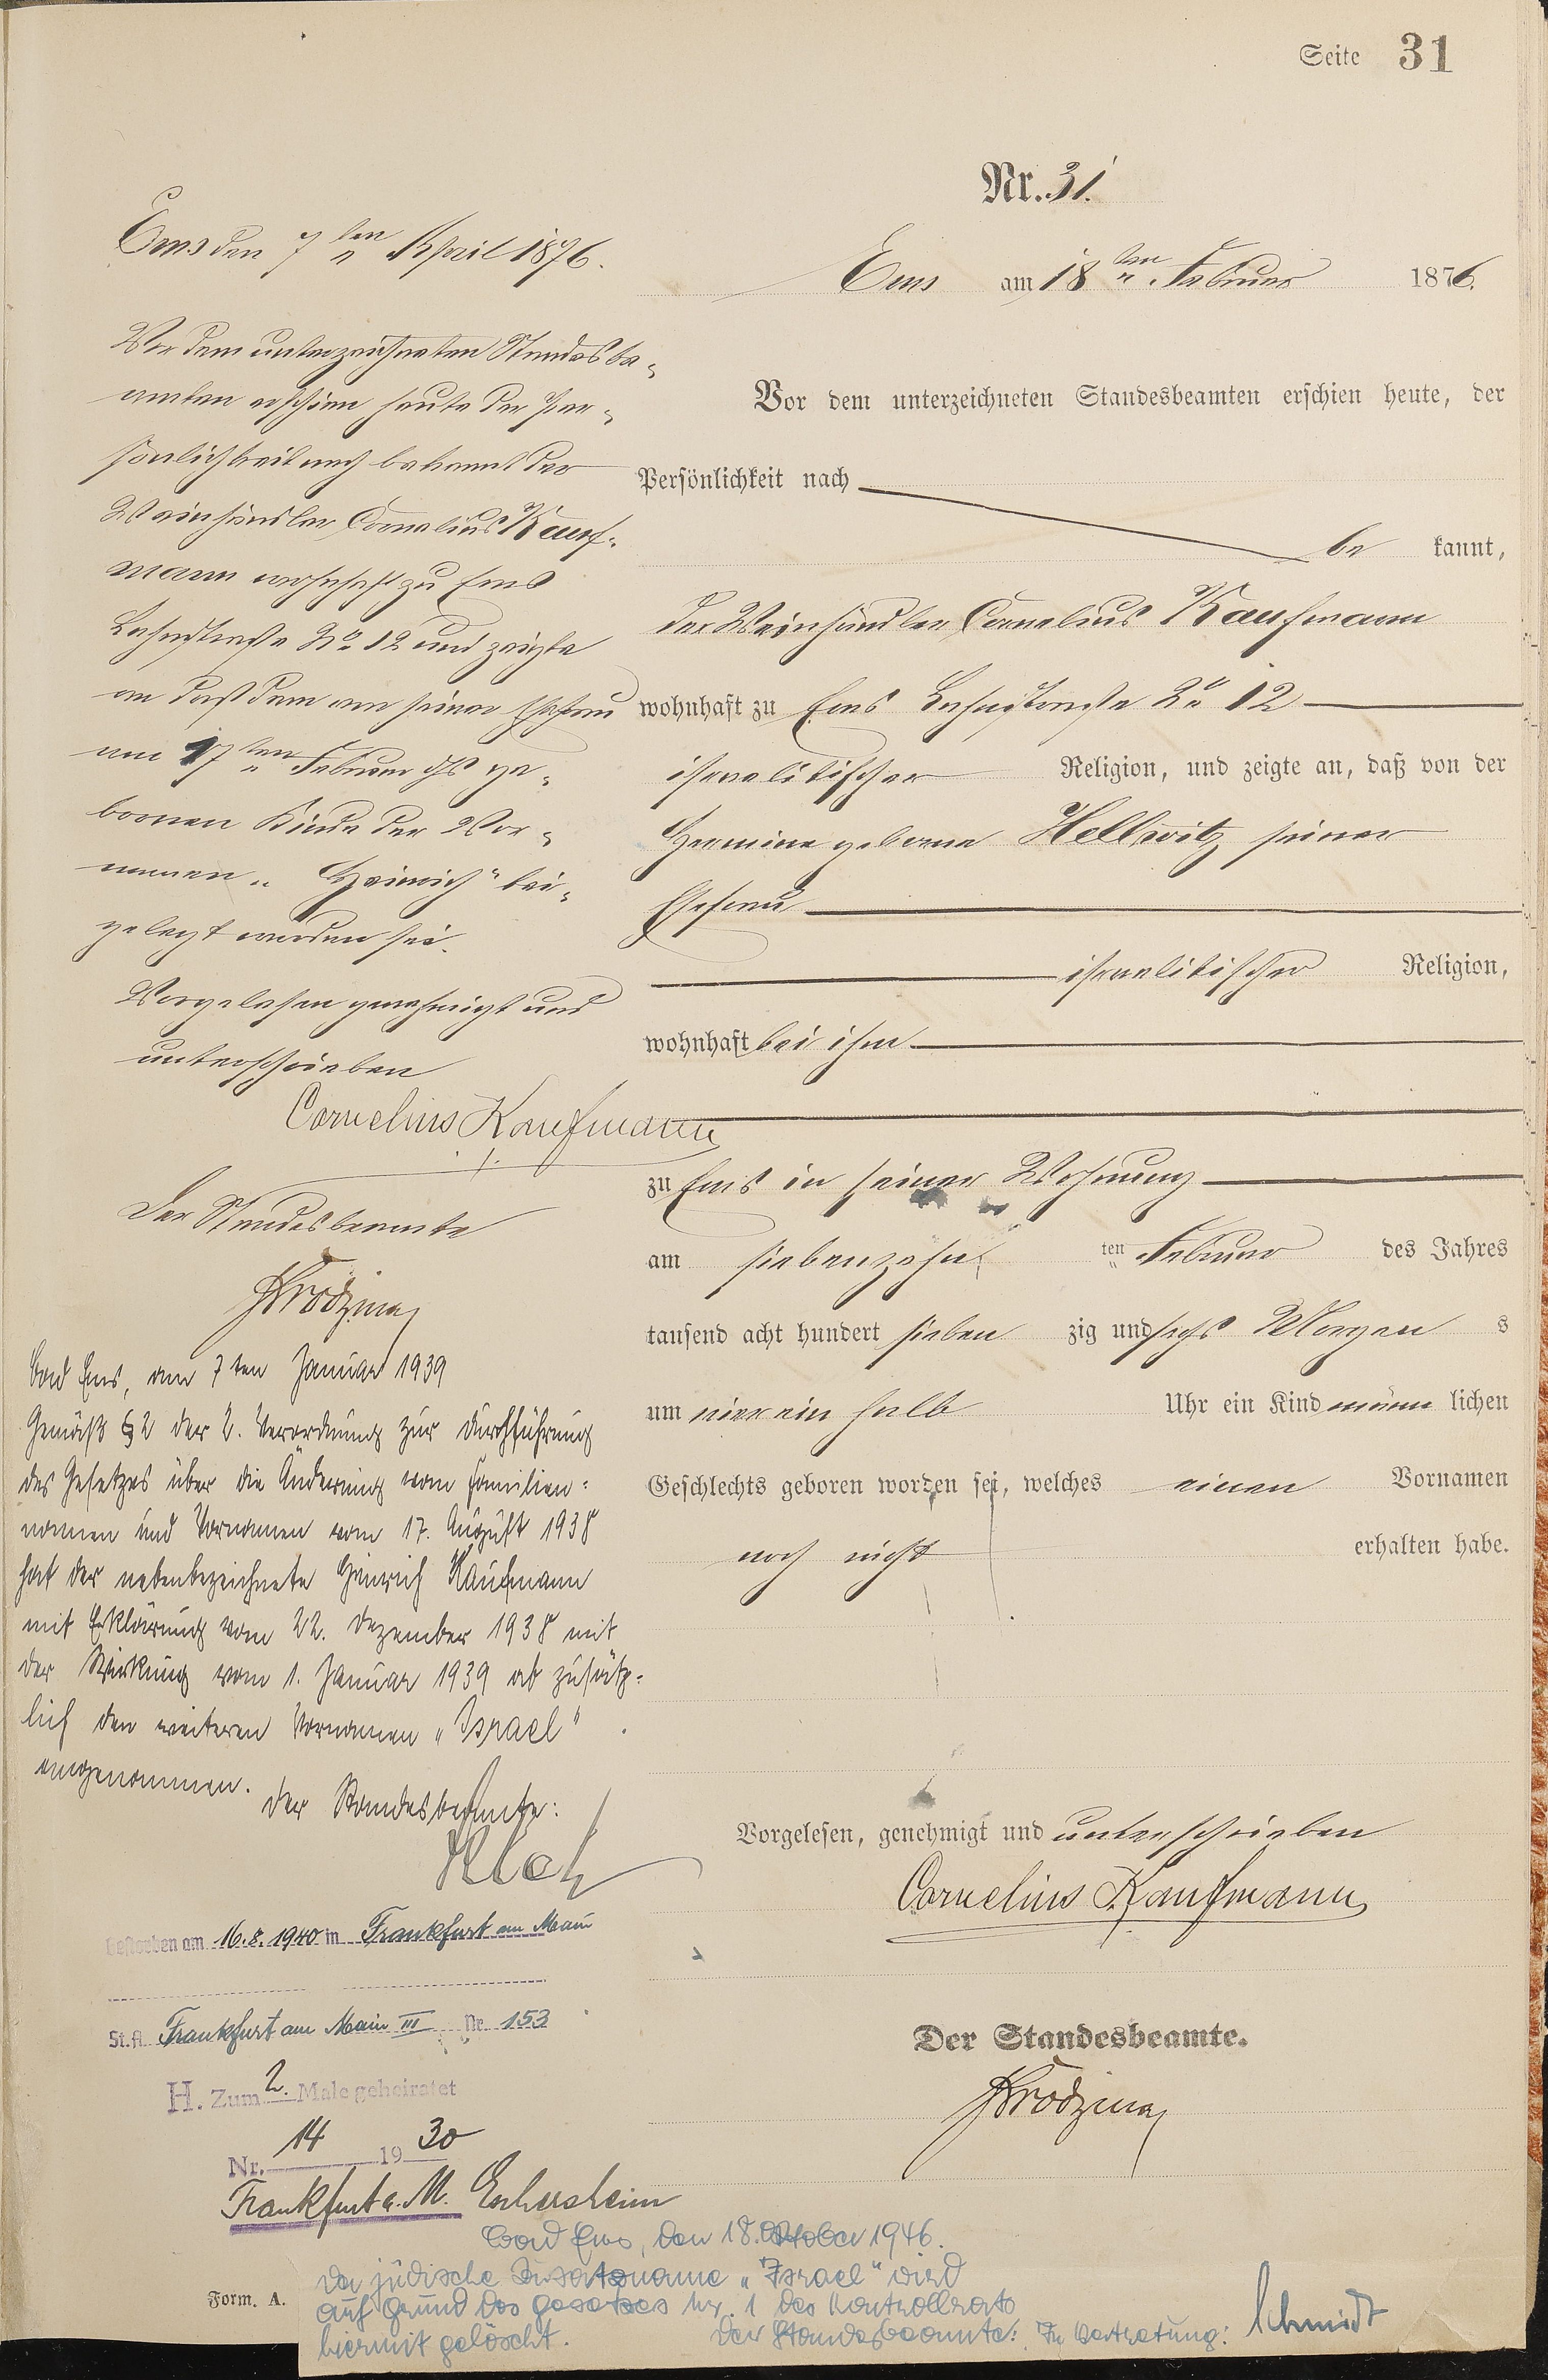 Seite 31
Nr. 31.
Ems am 18ten Februar 1876.
Vor dem unterzeichneten Standesbeamten erschien heute, der
Persönlichkeit nach
be kannt,
der Weinhändler Cornelius Kaufmann
wohnhaft zu Ems Lahnstraße No 12
israelitischer Religion, und zeigte an, daß von der
Hermine geborne Hellwitz seiner
Ehefrau
israelitischer Religion,
wohnhaft bei ihm
zu Ems in seiner Wohnung
am siebenzehn ten Februar des Jahres
tausend acht hundert sieben zig und sechs Morgen s
um vier ein halb Uhr ein Kind männ lichen
Geschlechts geboren worden sei, welches einen Vornamen
noch nicht erhalten habe.
Vorgelesen, genehmigt und unterschrieben
Cornelius Kaufmann
Der Standesbeamte.
Ems den 7ten April 1876.
Vor dem unterzeichneten Standesbe-
amten erschien heute der Per-
sönlichkeit nach bekannt der
Weinhändler Cornelius Kauf-
mann wohnhaft zu Ems
Lahnstraße No 12 und zeigte
an daß dem von seiner Ehefrau
am 17ten Februar ds ge-
bornen Kinde der Vor-
namen „Heinrich" bei-
gelegt worden sei.
Vorgelesen genehmigt und
unterschrieben
Cornelius Kaufmann
Der Standesbeamte
Bad Ems, am 7ten Januar 1939
Gemäß § 2 der 2. Verordnung zur Durchführung
des Gesetzes über die Änderung von Familien-
namen und Vornamen vom 17. August 1938
hat der nebenbezeichnete Heinrich Kaufmann
mit Erklärung vom 22. Dezember 1938 mit
der Wirkung vom 1. Januar 1939 ab zusätz-
lich den weiteren Vornamen „Israel"
angenommen.
Der Standesbeamte:
Gestorben am 16.8.1940 in Frankfurt am Main
St.A. Frankfurt am Main III Nr. 153
H. Zum 2. Male geheiratet
Nr. 14 1930
Frankfurt a. M. Eschersheim
Bad Ems, den 18. Oktober 1946.
Der jüdische Zusatzname „Israel" wird
auf Grund des Gesetzes Nr. 1 des Kontrollrats
hiermit gelöscht. Der Standesbeamte: In Vertretung: Schmidt
Form. A.